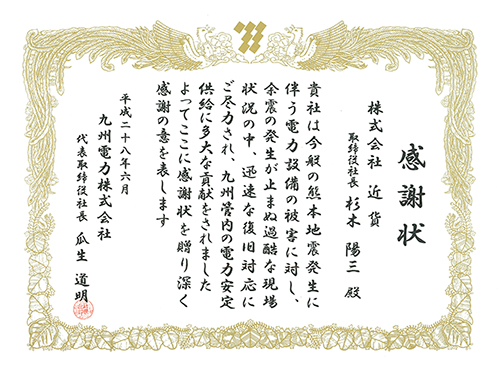 感謝状
株式会社 近貨
取締役社長 杉本 陽三 殿
貴社は今般の熊本地震発生に
伴う電力設備の被害に対し、
余震の発生が止まぬ過酷な現場
状況の中、迅速な復旧対応に
ご尽力され、九州管内の電力安定
供給に多大な貢献をされました
よってここに感謝状を贈り深く
感謝の意を表します
平成二十八年六月
九州電力株式会社
代表取締役社長 瓜生 道明